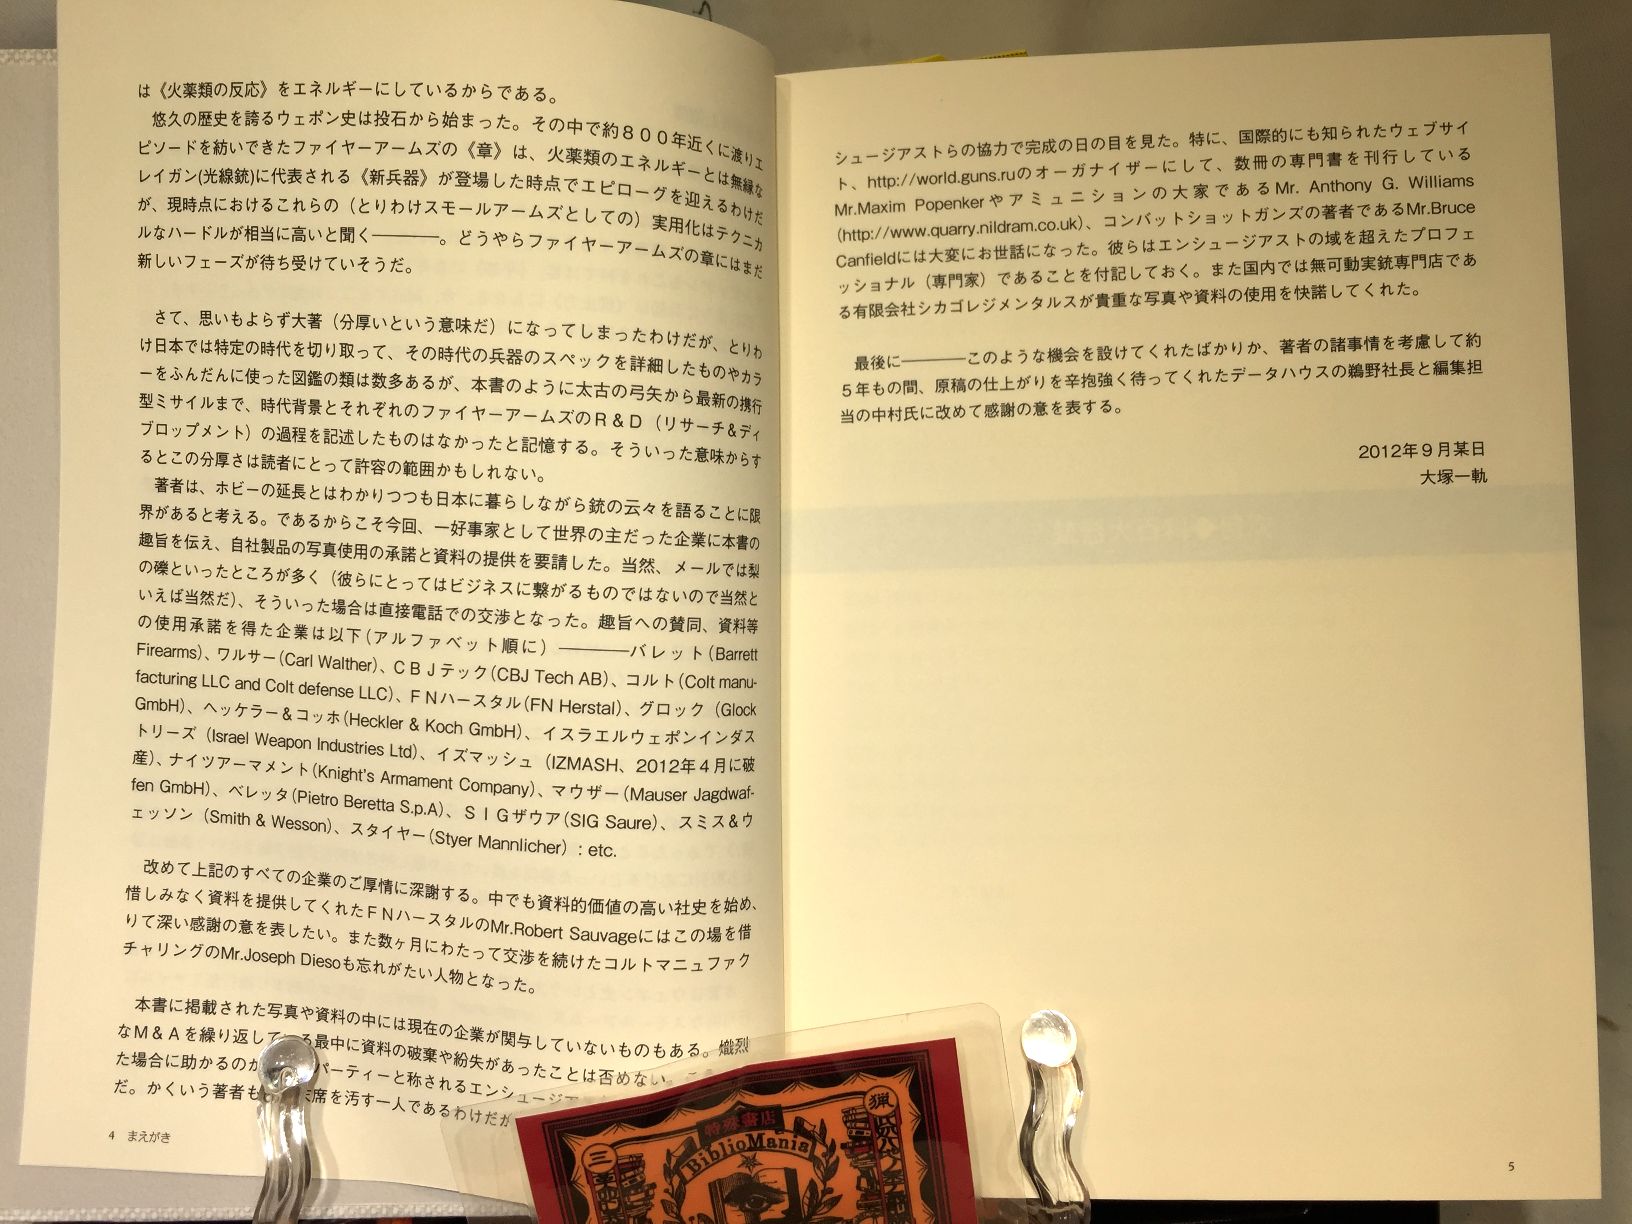 は《火薬類の反応》をエネルギーにしているからである。
悠久の歴史を誇るウェポン史は投石から始まった。その中で約８００年近くに渡りエ
ピソードを紡いできたファイヤーアームズの《章》は、火薬類のエネルギーとは無縁な
レイガン(光線銃)に代表される《新兵器》が登場した時点でエピローグを迎えるわけだ
が、現時点におけるこれらの（とりわけスモールアームズとしての）実用化はテクニカ
ルなハードルが相当に高いと聞く————。どうやらファイヤーアームズの章にはまだ
新しいフェーズが待ち受けていそうだ。
さて、思いもよらず大著（分厚いという意味だ）になってしまったわけだが、とりわ
け日本では特定の時代を切り取って、その時代の兵器のスペックを詳細したものやカラ
ーをふんだんに使った図鑑の類は数多あるが、本書のように太古の弓矢から最新の携行
型ミサイルまで、時代背景とそれぞれのファイヤーアームズのＲ＆Ｄ（リサーチ&ディ
ブロップメント）の過程を記述したものはなかったと記憶する。そういった意味からす
るとこの分厚さは読者にとって許容の範囲かもしれない。
著者は、ホビーの延長とはわかりつつも日本に暮らしながら銃の云々を語ることに限
界があると考える。であるからこそ今回、一好事家として世界の主だった企業に本書の
趣旨を伝え、自社製品の写真使用の承諾と資料の提供を要請した。当然、メールでは梨
の礫といったところが多く（彼らにとってはビジネスに繋がるものではないので当然と
いえば当然だ）、そういった場合は直接電話での交渉となった。趣旨への賛同、資料等
の使用承諾を得た企業は以下(アルファベット順に）————バレット(Barrett
Firearms)、ワルサー(Carl Walther)、ＣＢＪテック(CBJ Tech AB)、コルト(Colt manu-
facturing LLC and Colt defense LLC)、ＦＮハースタル(FN Herstal)、グロック（Glock
GmbH)、ヘッケラー＆コッホ(Heckler & Koch GmbH)、イスラエルウェポンインダス
トリーズ（Israel Weapon Industries Ltd)、イズマッシュ（IZMASH、2012年４月に破
産)、ナイツアーマメント(Knight's Armament Company)、マウザー(Mauser Jagdwaf-
fen GmbH)、ベレッタ(Pietro Beretta S.p.A)、ＳＩＧザウア(SIG Saure)、スミス＆ウ
ェッソン（Smith & Wesson)、スタイヤー(Styer Mannlicher）: etc.
改めて上記のすべての企業のご厚情に深謝する。中でも資料的価値の高い社史を始め、
惜しみなく資料を提供してくれたＦＮハースタルのMr.Robert Sauvageにはこの場を借
りて深い感謝の意を表したい。また数ヶ月にわたって交渉を続けたコルトマニュファク
チャリングのMr.Joseph Diesoも忘れがたい人物となった。
本書に掲載された写真や資料の中には現在の企業が関与していないものもある。熾烈
なＭ＆Ａを繰り返して る最中に資料の破棄や紛失があったことは否めない。
た場合に助かるのが パーティーと称されるエンシュージア
だ。かくいう著者も 席を汚す一人であるわけだが
4 まえがき
シュージアストらの協力で完成の日の目を見た。特に、国際的にも知られたウェブサイ
ト、http://world.guns.ruのオーガナイザーにして、数冊の専門書を刊行している
Mr.Maxim Popenkerやアミュニションの大家であるMr. Anthony G. Williams
（http://www.quarry.nildram.co.uk)、コンバットショットガンズの著者であるMr.Bruce
Canfieldには大変にお世話になった。彼らはエンシュージアストの域を超えたプロフェ
ッショナル（専門家）であることを付記しておく。また国内では無可動実銃専門店であ
る有限会社シカゴレジメンタルスが貴重な写真や資料の使用を快諾してくれた。
最後に————このような機会を設けてくれたばかりか、著者の諸事情を考慮して約
５年もの間、原稿の仕上がりを辛抱強く待ってくれたデータハウスの鵜野社長と編集担
当の中村氏に改めて感謝の意を表する。
2012年９月某日
大塚一軌
5
特殊書店
BiblioMania